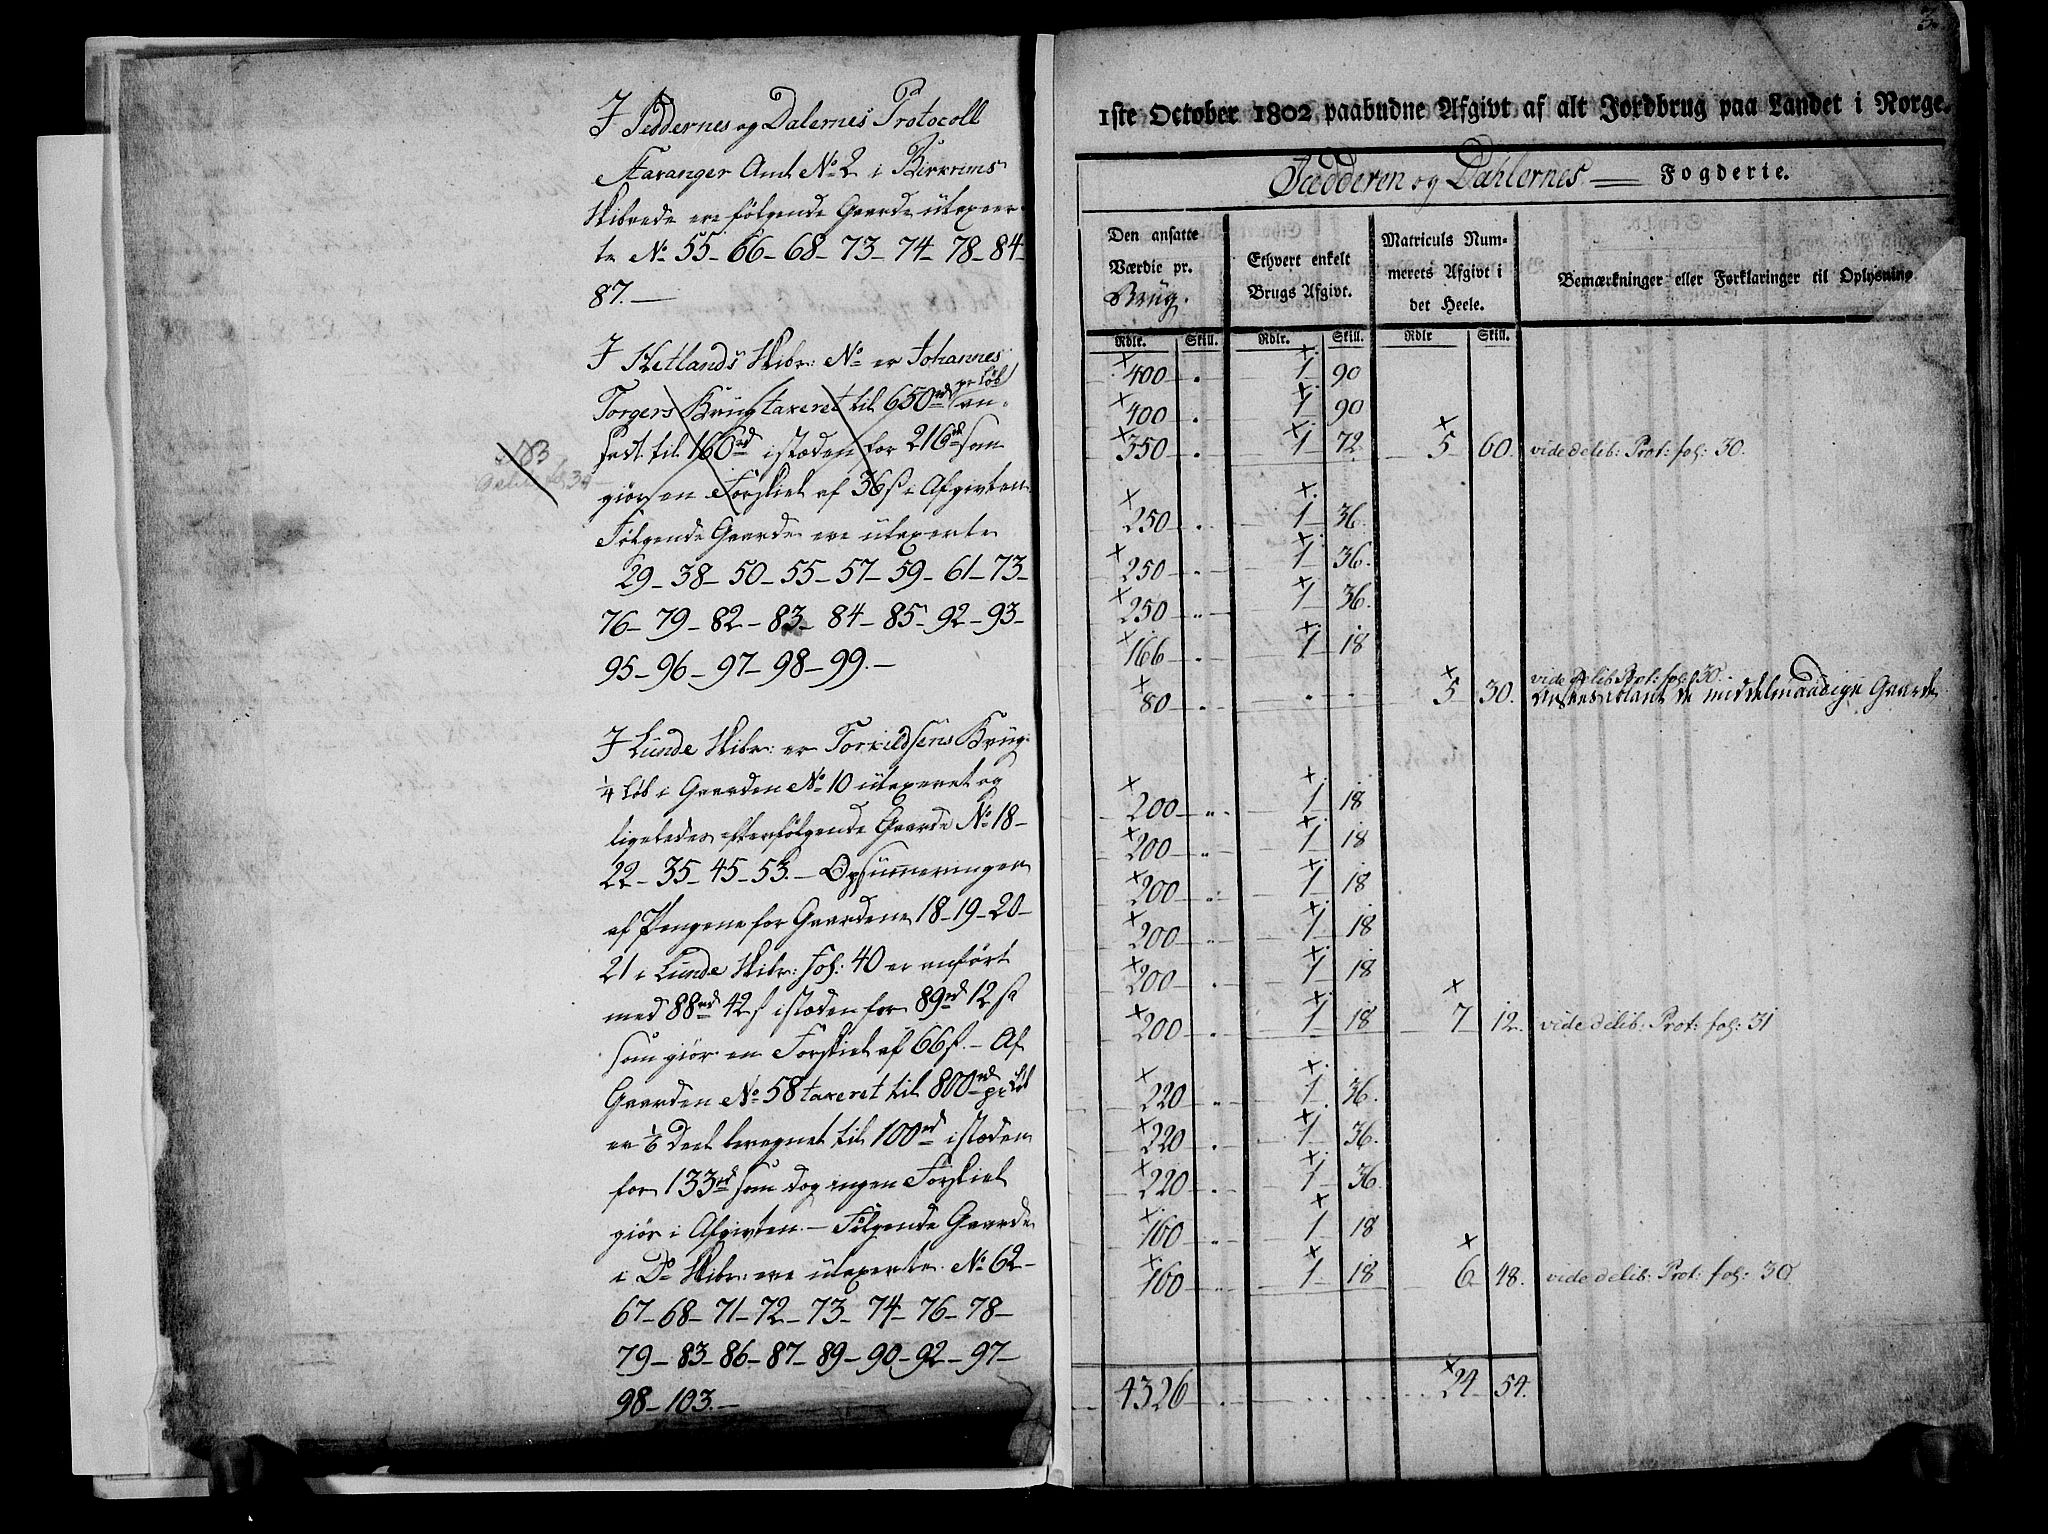 J Jeddernes og Dalernes Protocoll
Stavanger Amt No 2 i Birkrems
Skibrede ere følgende Gaarde utaxeer-
te No 55 - 66 - 68 - 73 - 74 - 78 - 84 -
87. —
J Hetlands Skibr: No er Johannes
Torgers Brug taxeret til 650 rd pr Løb an-
sadt til 160 rd istæden for 216 rd som
giør en Forskiel af 36 s i Afgivten
Følgende Gaarde ere utaxerte
29 - 38 - 50 - 55 - 57 - 59 - 61 - 73 -
76 - 79 - 82 - 83 - 84 - 85 - 92 - 93 -
95 - 96 - 97 - 98 - 99. —
J Lunde Skibr: er Torkildsens Brug
1/4 Løb i Gaarden No 10 utaxeret og
ligeledes efterfølgende Gaarde No 18 -
22 - 35 - 45 - 53. - Opsumeringen
af Pengene for Gaardene 18 - 19 - 20 -
21 i Lunde Skibr: fol: 40 er anført
med 88 rd 42 s istæden for 89 rd 12 s
som giør en Forskiel af 66 s. - Af
Gaarden No 58 taxeret til 800 rd pr Løb
er 1/6 Deel beregnet til 100 rd istæden
for 133 rd som dog ingen Forskiel
giør i Afgivten. - Følgende Gaarde
i Do Skibr: ere utaxerte No 62 -
67 - 68 - 71 - 72 - 73 - 74 - 76 - 78 -
79 - 83 - 86 - 87 - 89 - 90 - 92 - 97 -
98 - 103. —
3.
1ste October 1802 paabudne Afgivt af alt Jordbrug paa Landet i Norge.
Jædderen og Dahlernes — Fogderie.
Den ansatte Værdie pr. Brug. | Ethvert enkelt Brugs Afgivt. | Matriculs Nummerets Afgivt i det Heele. | Bemærkninger eller Forklaringer til Oplysning.
Rdlr. Skill. | Rdlr. Skill. | Rdlr Skill.
400 . 1 90
400 . 1 90
350 . 1 72 5 60. vide delib: Prot: fol: 30.
250 . 1 36.
250 . 1 36.
250 . 1 36.
166 . 1 18
80 . . . 5 30. vide delib: Prot: fol: 30.
iblant de middelmaadige Gaarde
200 . 1 18
200 . 1 18
200 . 1 18
200 . 1 18
200 . 1 18
200 . 1 18 7 12. vide delib: Prot: fol: 31
220 . 1 36.
220 . 1 36.
220 . 1 36.
160 . 1 18
160 . 1 18 6 48. vide delib: Prot: fol: 30.
4326 . 24 54.